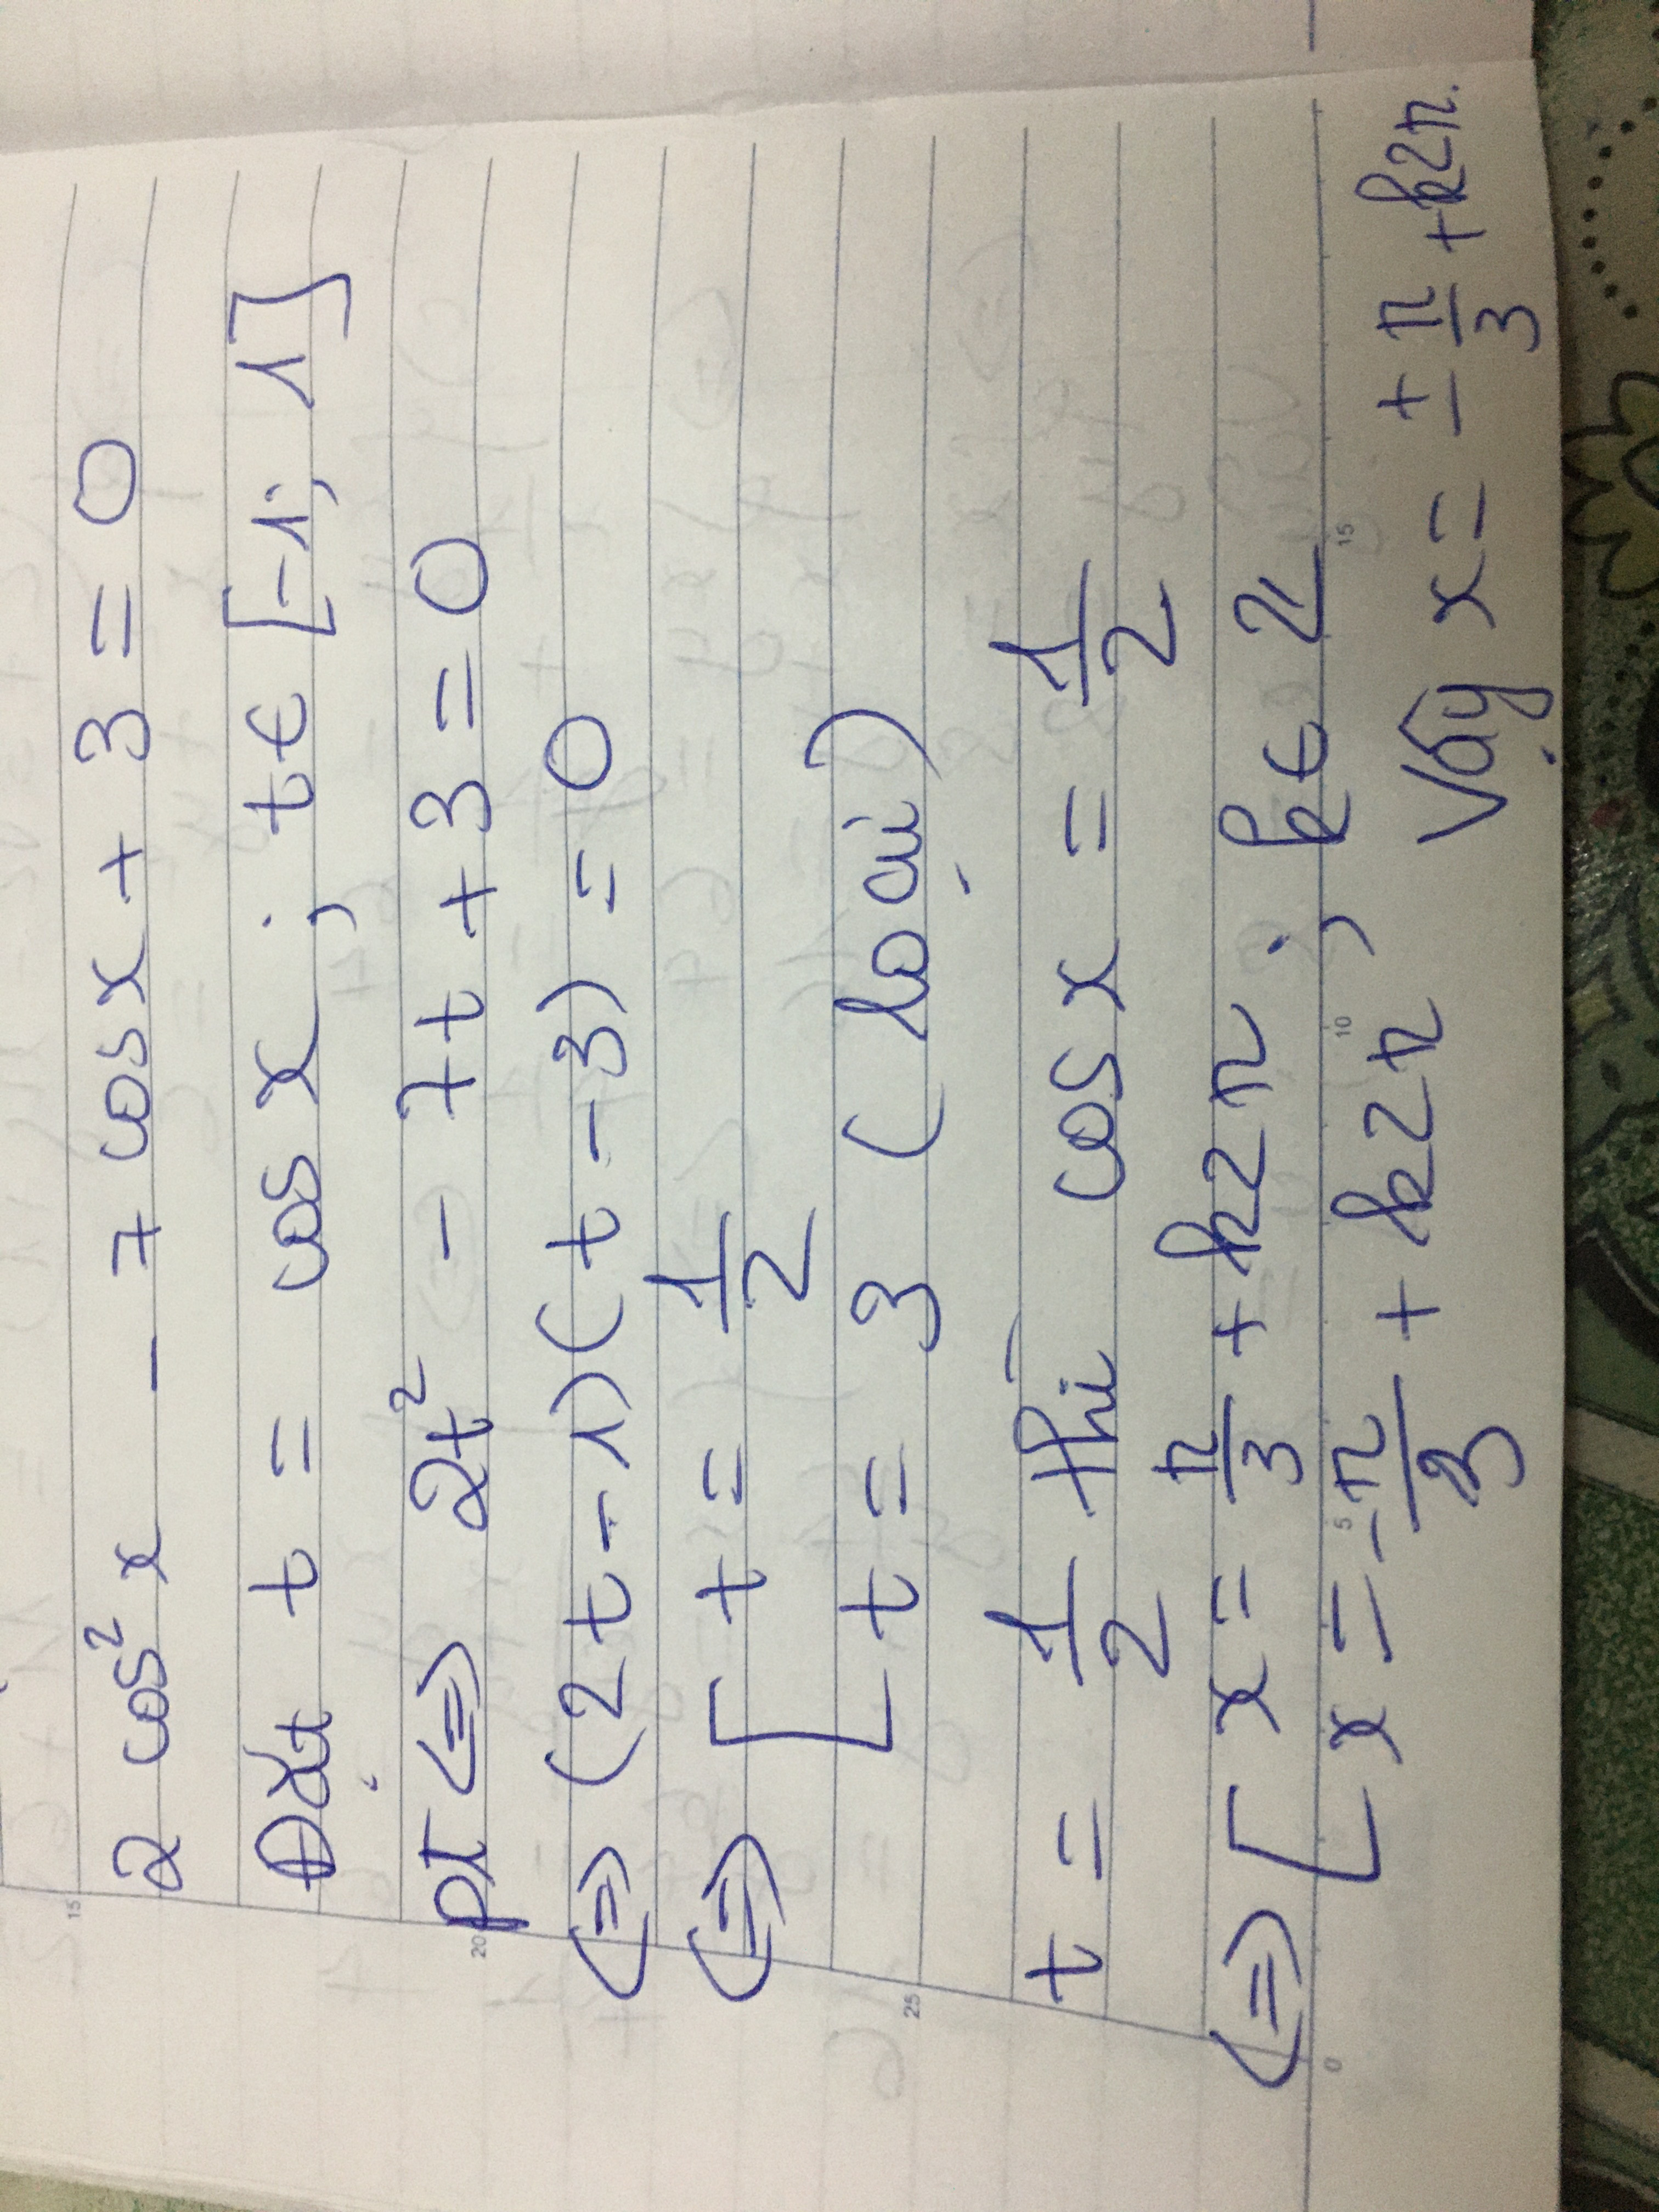 2 cos² x - 7 cos x + 3 = 0
Đặt t = cos x ; t ∈ [-1; 1]
pt <=> 2t² - 7t + 3 = 0
<=> (2t-1)(t-3) = 0
<=> [ t = 1/2
[ t = 3 (loại)
t = 1/2 thì cos x = 1/2
<=> [ x = π/3 + k2π ; k ∈ Z
[ x = -π/3 + k2π Vậy x = ± π/3 + k2π.
15
20
25
0 5 10 15